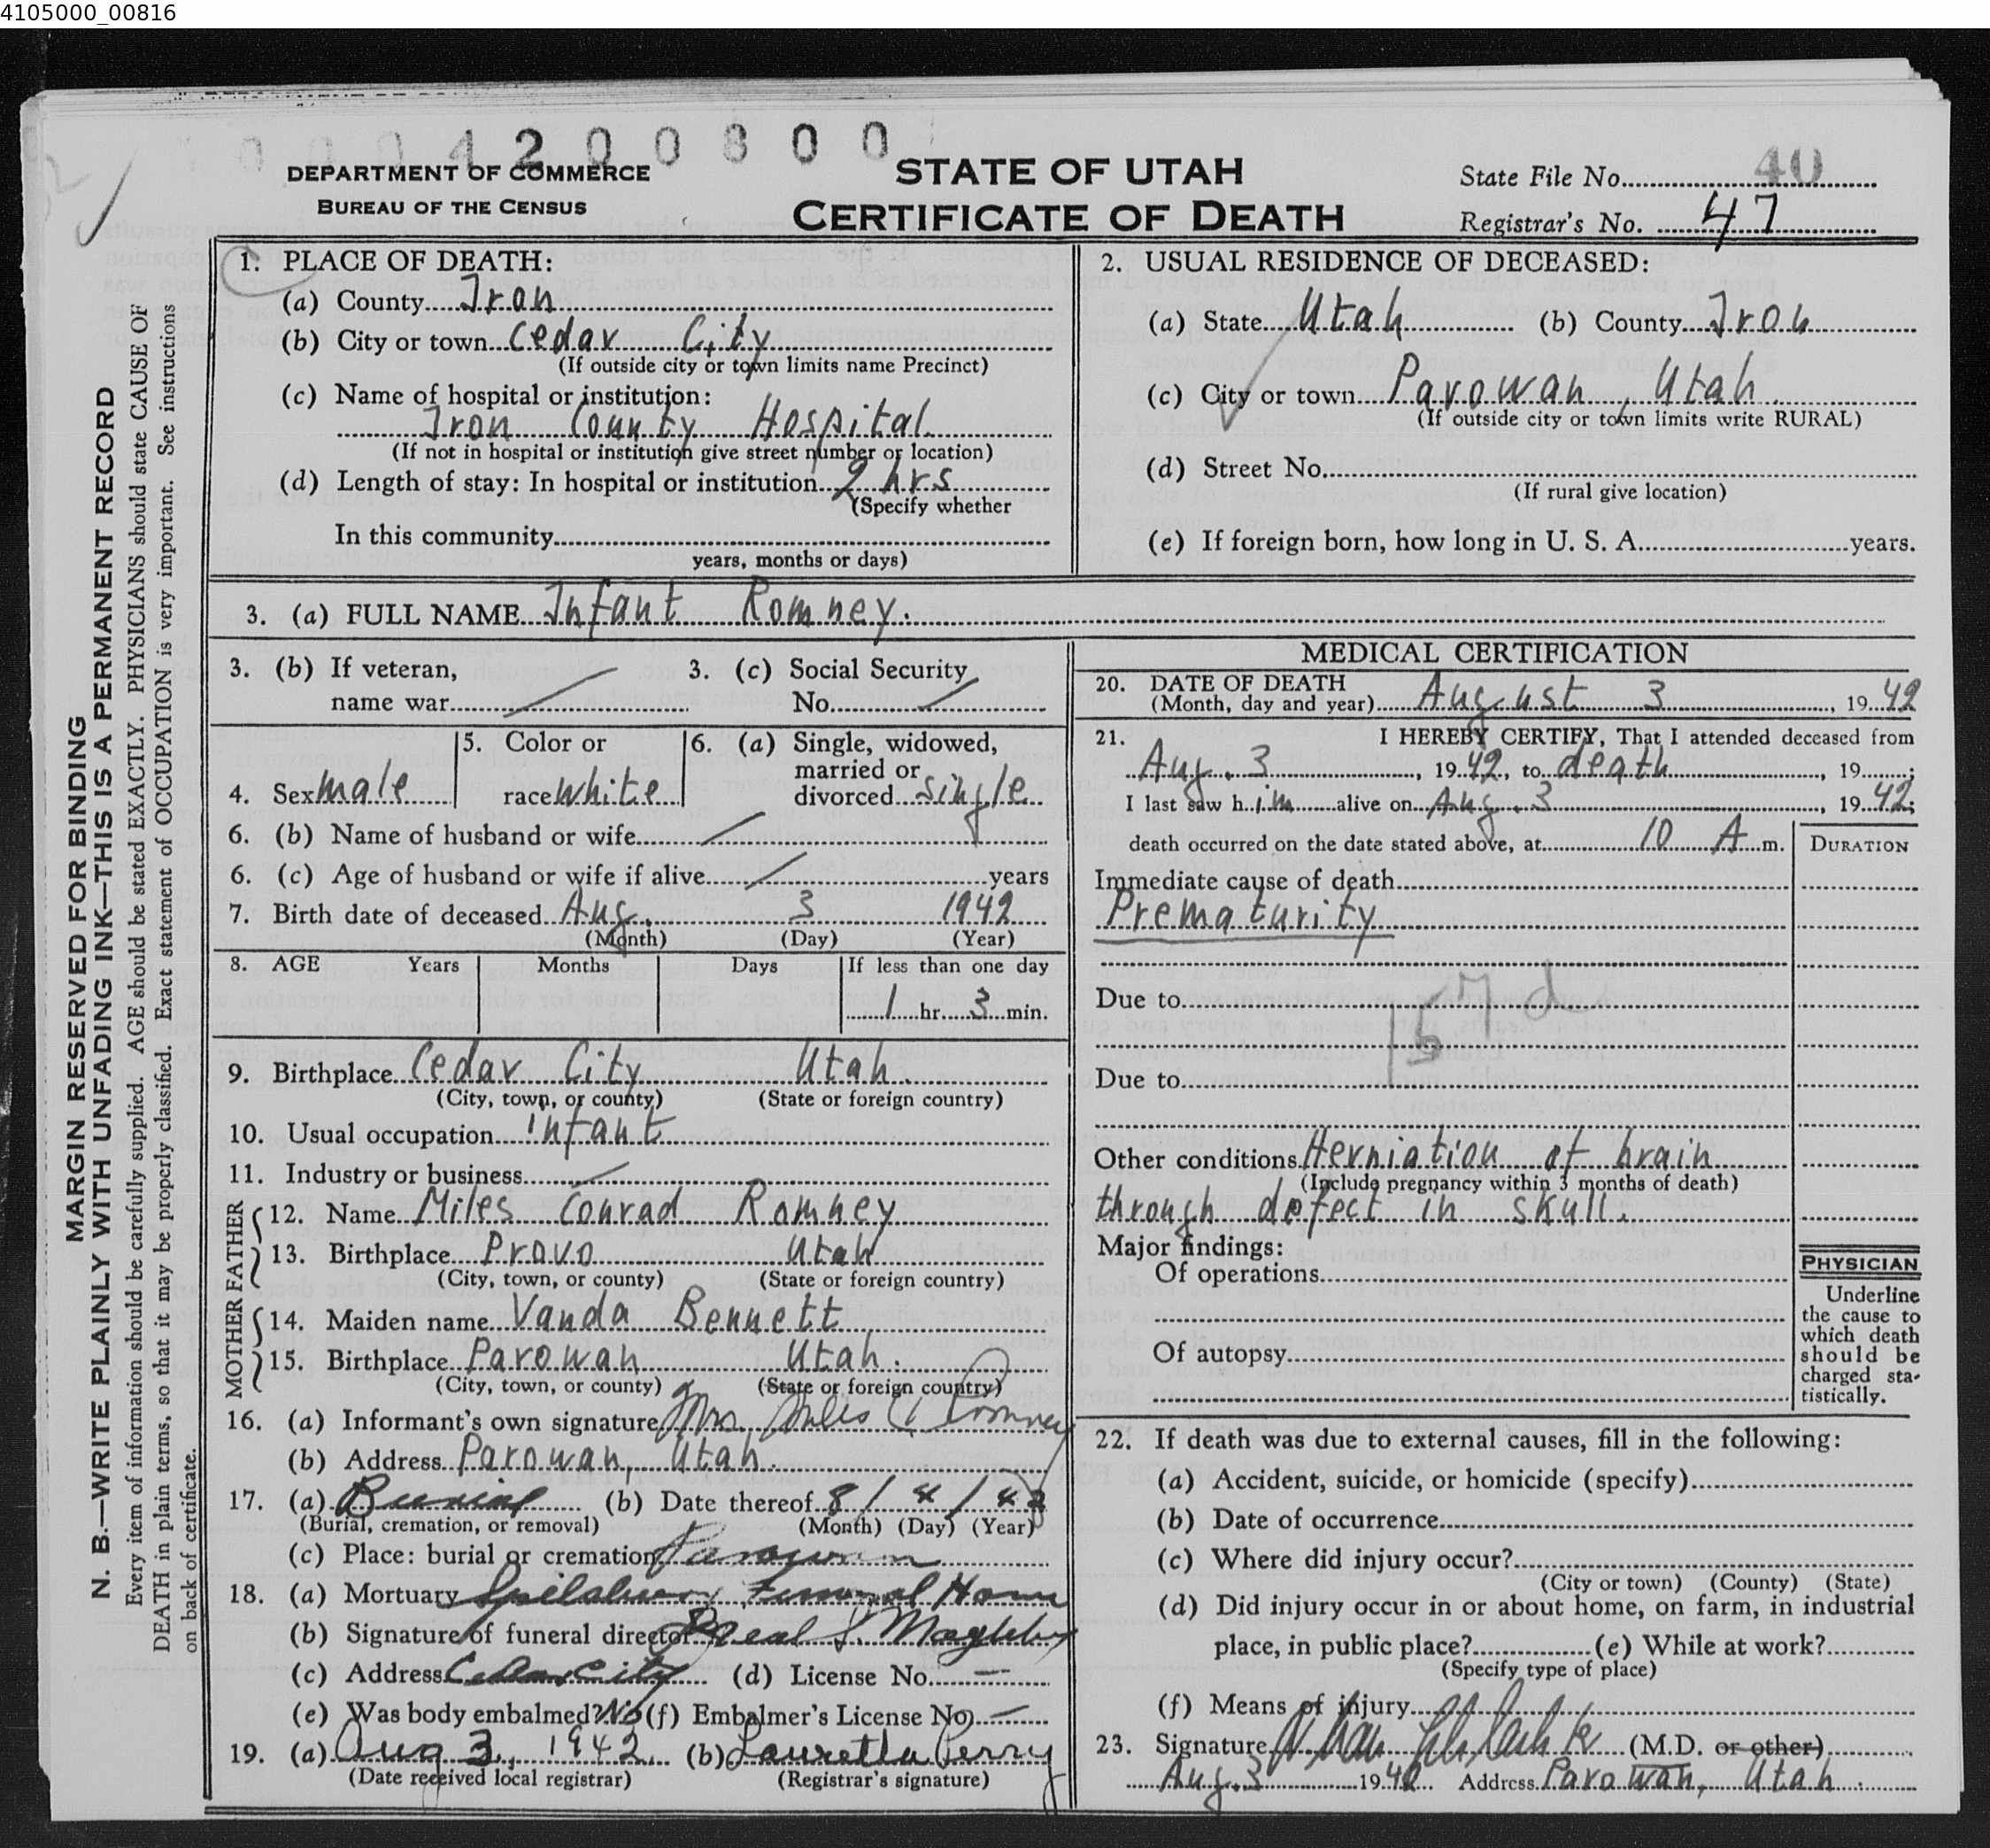 4105000_00816
4 2 0 0 8 0 0
DEPARTMENT OF COMMERCE
BUREAU OF THE CENSUS
STATE OF UTAH
CERTIFICATE OF DEATH
State File No. 40
Registrar's No. 47
MARGIN RESERVED FOR BINDING
N. B.—WRITE PLAINLY WITH UNFADING INK—THIS IS A PERMANENT RECORD
Every item of information should be carefully supplied. AGE should be stated EXACTLY. PHYSICIANS should state CAUSE OF
DEATH in plain terms, so that it may be properly classified. Exact statement of OCCUPATION is very important. See instructions
on back of certificate.
1. PLACE OF DEATH:
(a) County Iron
(b) City or town Cedar City
(If outside city or town limits name Precinct)
(c) Name of hospital or institution:
Iron County Hospital
(If not in hospital or institution give street number or location)
(d) Length of stay: In hospital or institution 2 hrs
(Specify whether
In this community
years, months or days)
2. USUAL RESIDENCE OF DECEASED:
(a) State Utah (b) County Iron
(c) City or town Parowan, Utah.
(If outside city or town limits write RURAL)
(d) Street No.
(If rural give location)
(e) If foreign born, how long in U. S. A. years.
3. (a) FULL NAME Infant Romney.
3. (b) If veteran, 3. (c) Social Security
name war No.
5. Color or 6. (a) Single, widowed,
married or
4. Sex male race white divorced single
6. (b) Name of husband or wife
6. (c) Age of husband or wife if alive years
7. Birth date of deceased Aug. 3 1942
(Month) (Day) (Year)
8. AGE Years Months Days If less than one day
1 hr. 3 min.
9. Birthplace Cedar City Utah.
(City, town, or county) (State or foreign country)
10. Usual occupation infant
11. Industry or business
FATHER
12. Name Miles Conrad Romney
13. Birthplace Provo Utah
(City, town, or county) (State or foreign country)
MOTHER
14. Maiden name Vanda Bennett
15. Birthplace Parowan Utah.
(City, town, or county) (State or foreign country)
16. (a) Informant's own signature Mrs. Miles C Romney
(b) Address Parowan, Utah.
17. (a) Burial (b) Date thereof 8/4/42
(Burial, cremation, or removal) (Month) (Day) (Year)
(c) Place: burial or cremation Parowan
18. (a) Mortuary Spilsbury Funeral Home
(b) Signature of funeral director Neal S. Magleby
(c) Address Cedar City (d) License No. —
(e) Was body embalmed? No (f) Embalmer's License No. —
19. (a) Aug 3, 1942 (b) Lauretta Perry
(Date received local registrar) (Registrar's signature)
MEDICAL CERTIFICATION
20. DATE OF DEATH
(Month, day and year) August 3, 1942
21. I HEREBY CERTIFY, That I attended deceased from
Aug. 3, 1942, to death, 19 ;
I last saw him alive on Aug. 3, 1942;
death occurred on the date stated above, at 10 A m.
DURATION
Immediate cause of death
Prematurity
Due to
Due to
Other conditions Herniation of brain
(Include pregnancy within 3 months of death)
through defect in skull.
Major findings:
Of operations
Of autopsy
PHYSICIAN
Underline
the cause to
which death
should be
charged sta-
tistically.
22. If death was due to external causes, fill in the following:
(a) Accident, suicide, or homicide (specify)
(b) Date of occurrence
(c) Where did injury occur?
(City or town) (County) (State)
(d) Did injury occur in or about home, on farm, in industrial
place, in public place? (e) While at work?
(Specify type of place)
(f) Means of injury
23. Signature (M.D. or other)
Aug. 3 1942 Address Parowan, Utah.